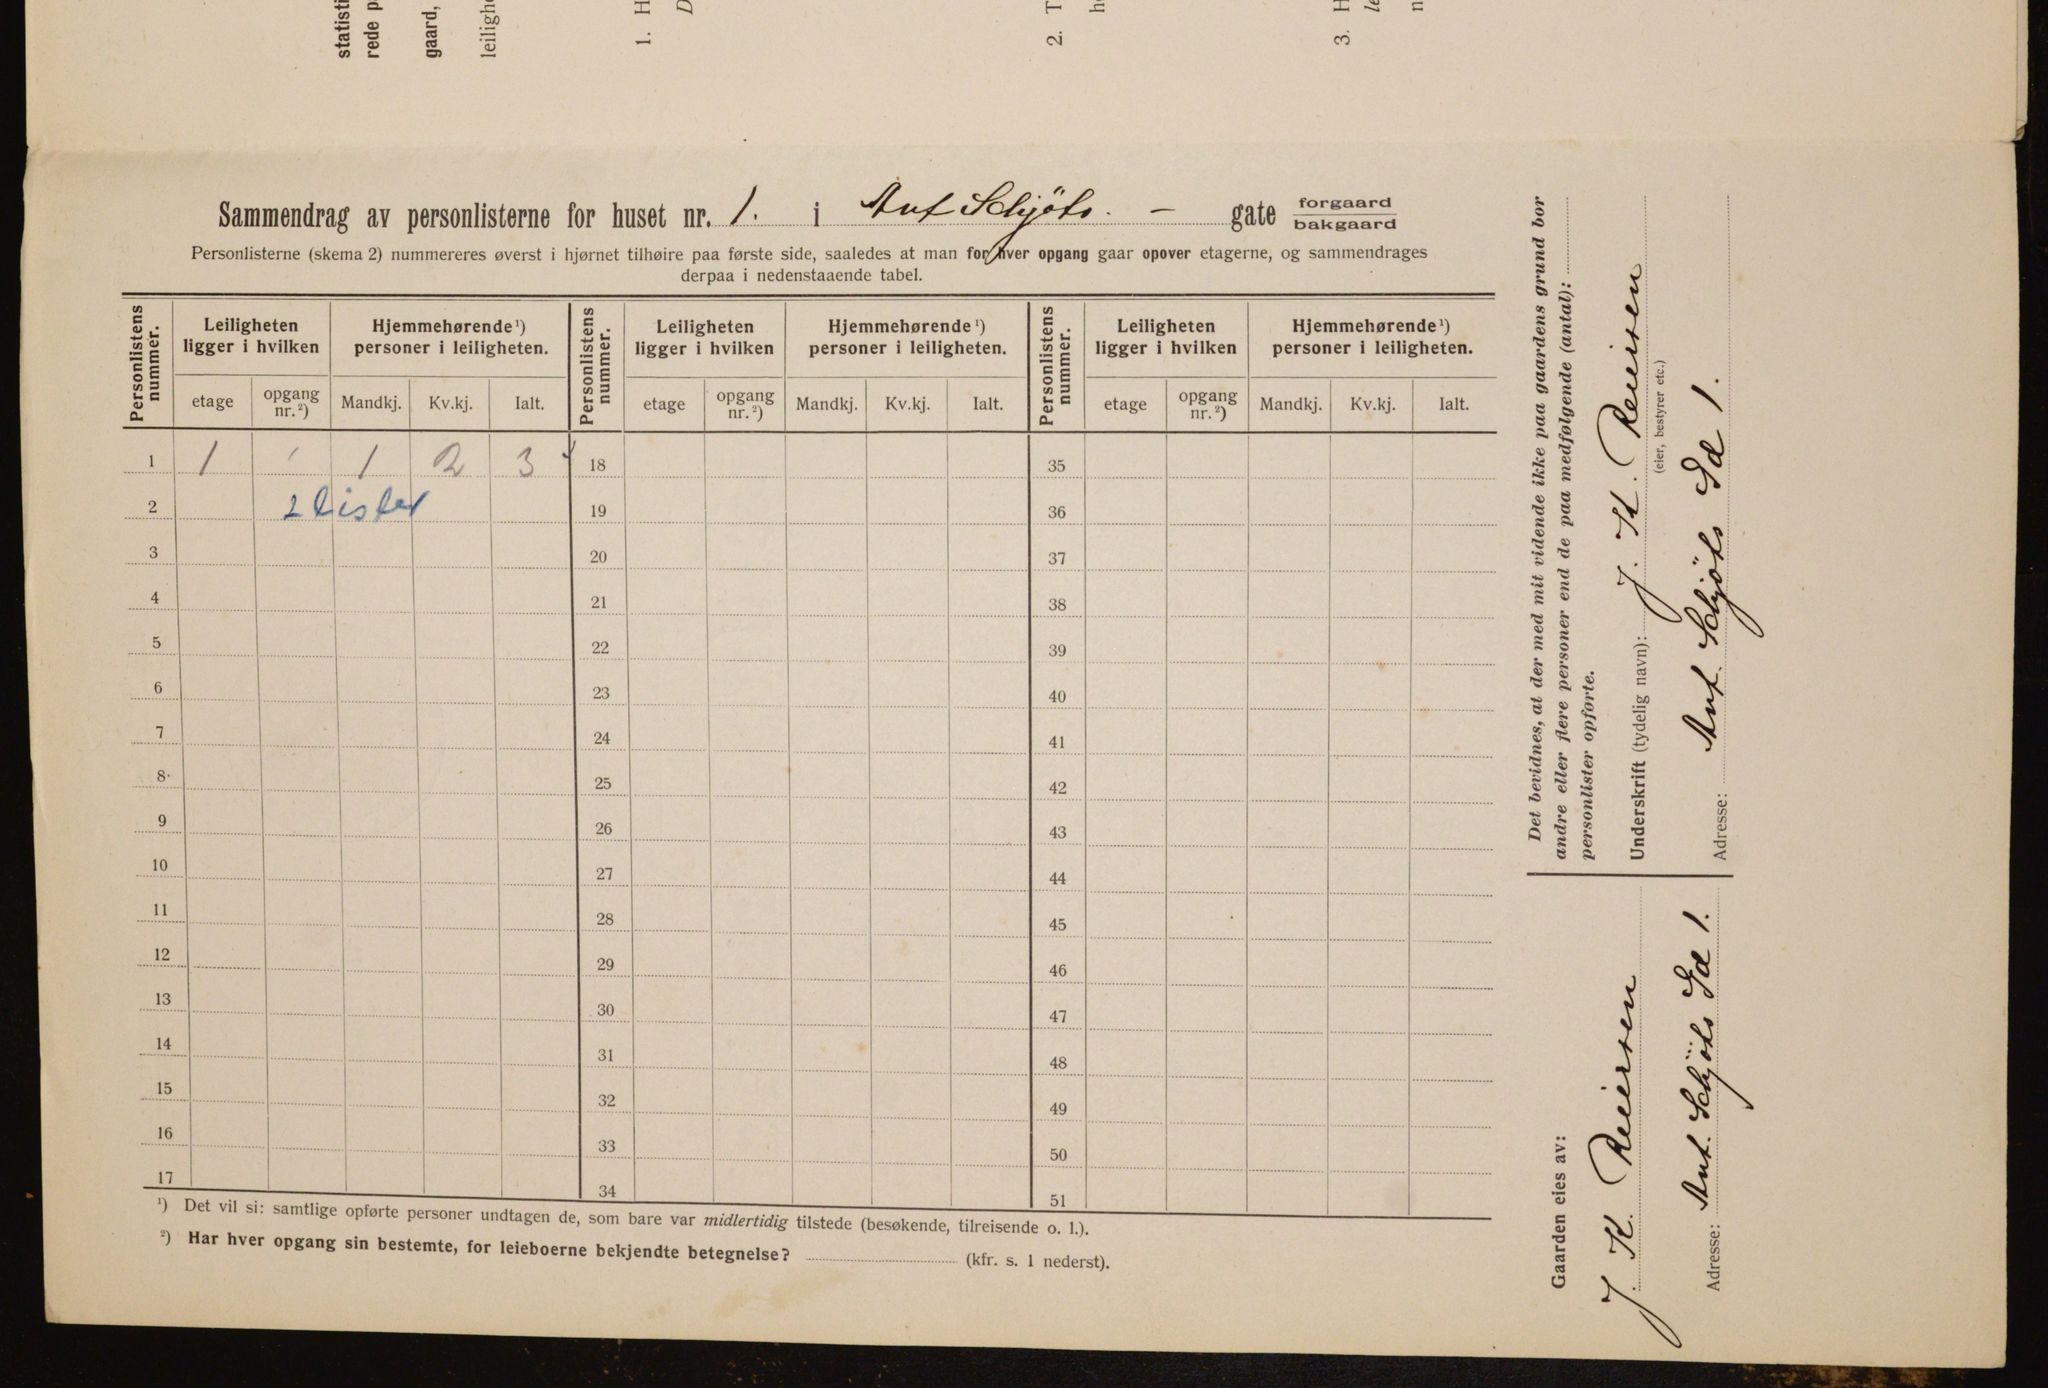 statisti
rede p
gaard,
leilighe
1. H
D
2. T
h
3. H
le
n
Sammendrag av personlisterne for huset nr. 1. i Ant Schjöts. - gate forgaard
bakgaard
Personlisterne (skema 2) nummereres øverst i hjørnet tilhøire paa første side, saaledes at man for hver opgang gaar opover etagerne, og sammendrages
derpaa i nedenstaaende tabel.
Personlistens nummer. Leiligheten ligger i hvilken Hjemmehørende ¹) personer i leiligheten. Personlistens nummer. Leiligheten ligger i hvilken Hjemmehørende ¹) personer i leiligheten. Personlistens nummer. Leiligheten ligger i hvilken Hjemmehørende ¹) personer i leiligheten.
etage opgang nr. ²) Mandkj. Kv.kj. Ialt. etage opgang nr. ²) Mandkj. Kv.kj. Ialt. etage opgang nr. ²) Mandkj. Kv.kj. Ialt.
1 1 1 2 3 18 35
2 2 lister 19 36
3 20 37
4 21 38
5 22 39
6 23 40
7 24 41
8 25 42
9 26 43
10 27 44
11 28 45
12 29 46
13 30 47
14 31 48
15 32 49
16 33 50
17 34 51
¹) Det vil si: samtlige opførte personer undtagen de, som bare var midlertidig tilstede (besøkende, tilreisende o. l.).
²) Har hver opgang sin bestemte, for leieboerne bekjendte betegnelse? (kfr. s. 1 nederst).
Det bevidnes, at der med mit vidende ikke paa gaardens grund bor
andre eller flere personer end de paa medfølgende (antal):
personlister opførte.
Underskrift (tydelig navn): J. K. Reiersen
(eier, bestyrer etc.)
Adresse: Ant. Schjöts Gd 1.
Gaarden eies av:
J. K. Reiersen
Adresse: Ant. Schjöts Gd 1.